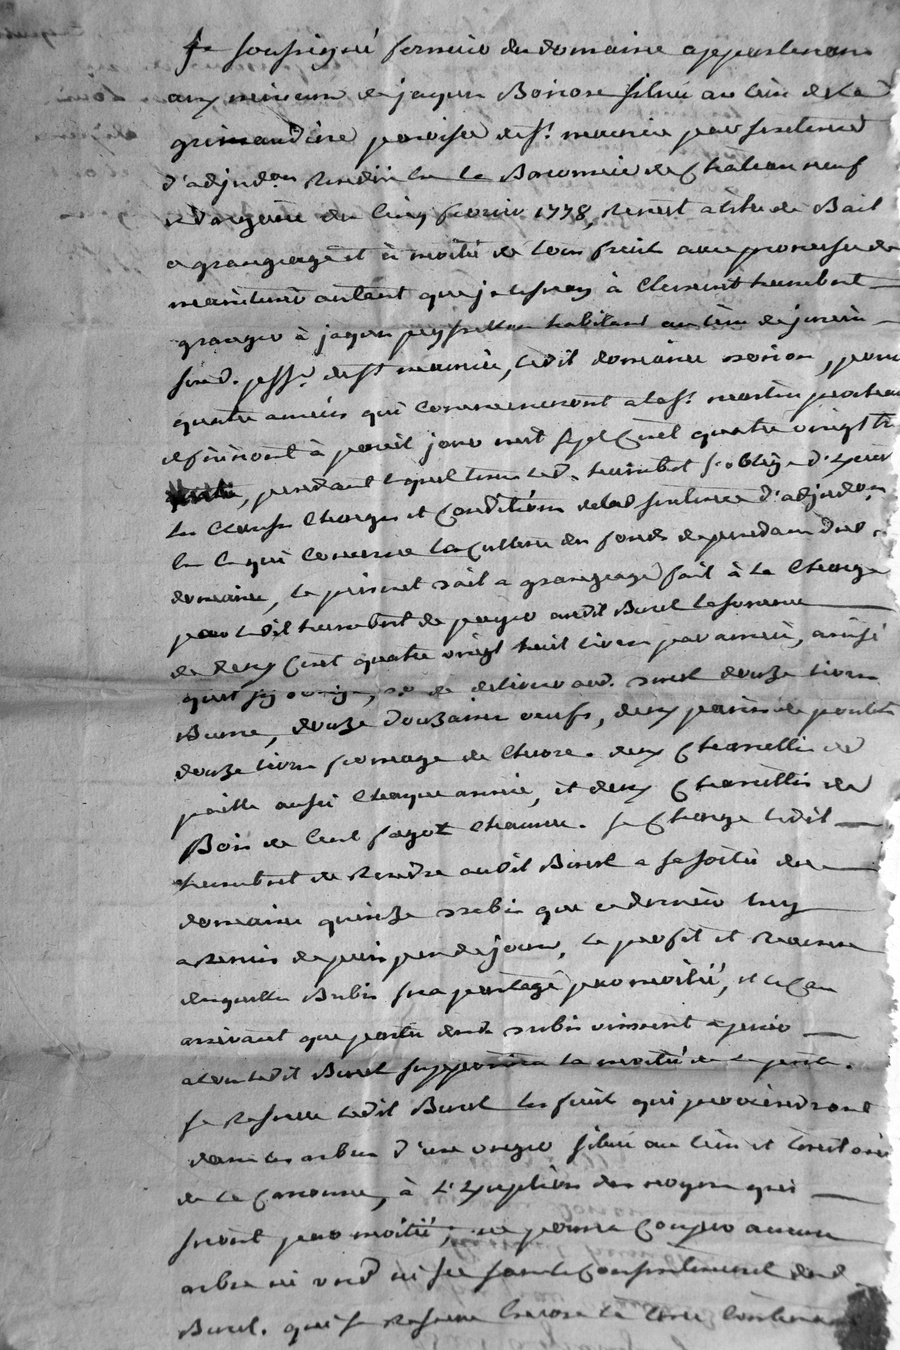 Je soussigné fermier du domaine appartenan
aux mineurs de jaques Boiron situé au lieu de La
grimaudiere paroisse de St. maurice par sentence
d'adjudon rendue en la Baronnie de Chateauneuf
du cinq fevrier 1778, remet a titre de Bail
a grangeage et à moitié de tous fruit avec promesse de
maintenir autant que je tesray à Clement humbert
granger à jaques peyssellon habitant au lieu de
sud. psse. de St maurice, ledit domaine Boiron, pour
quatre années qui commenceront a la St. martin prochain
et finiront à pareil jour mil sept Cent quatre vingt
pendant lequel tems led. humbert s'oblige d'
les Clauses Charges et Conditions de lad sentence d'adjudon
en ce qui concerne la Culture du fonds dependam dud.
domaine, le present Bail a grangeage fait à la Charge
par ledit humbert de payer audit Burel la somme
de deux Cent quatre vingt huit livres par année, ainsi
que de delivrer aud. Burel douze livres
Burre, douze douzaines oeufs, deux paires de poulets
douze livres fromage de Chevre. deux Charettes de
paille aussi Chaque année, et deux Charettes de
Bois de Cent fagot Chacune. Se Charge ledit
humbert de Rendre audit Burel a sa sortie du
domaine quinze Brebis que ce dernier luy
a Remis depuis peu de jours, le profit et
desquelles Brebis sera partagé par moitié, et le Cas
arrivant que partie desd. Brebis vinssent a perir
alors ledit Burel supportera la moitié de la perte.
Se Reserve ledit Burel les fruit qui proviendront
dans les arbres d'un verger situé au lieu et territoire
de la à L'Exception des noyers qui
seront par moitié; ne pourra Couper aucun
arbre ni verd ni sec sans le Consentement dud.
Burel. qui se Reserve encore la terre Contenan